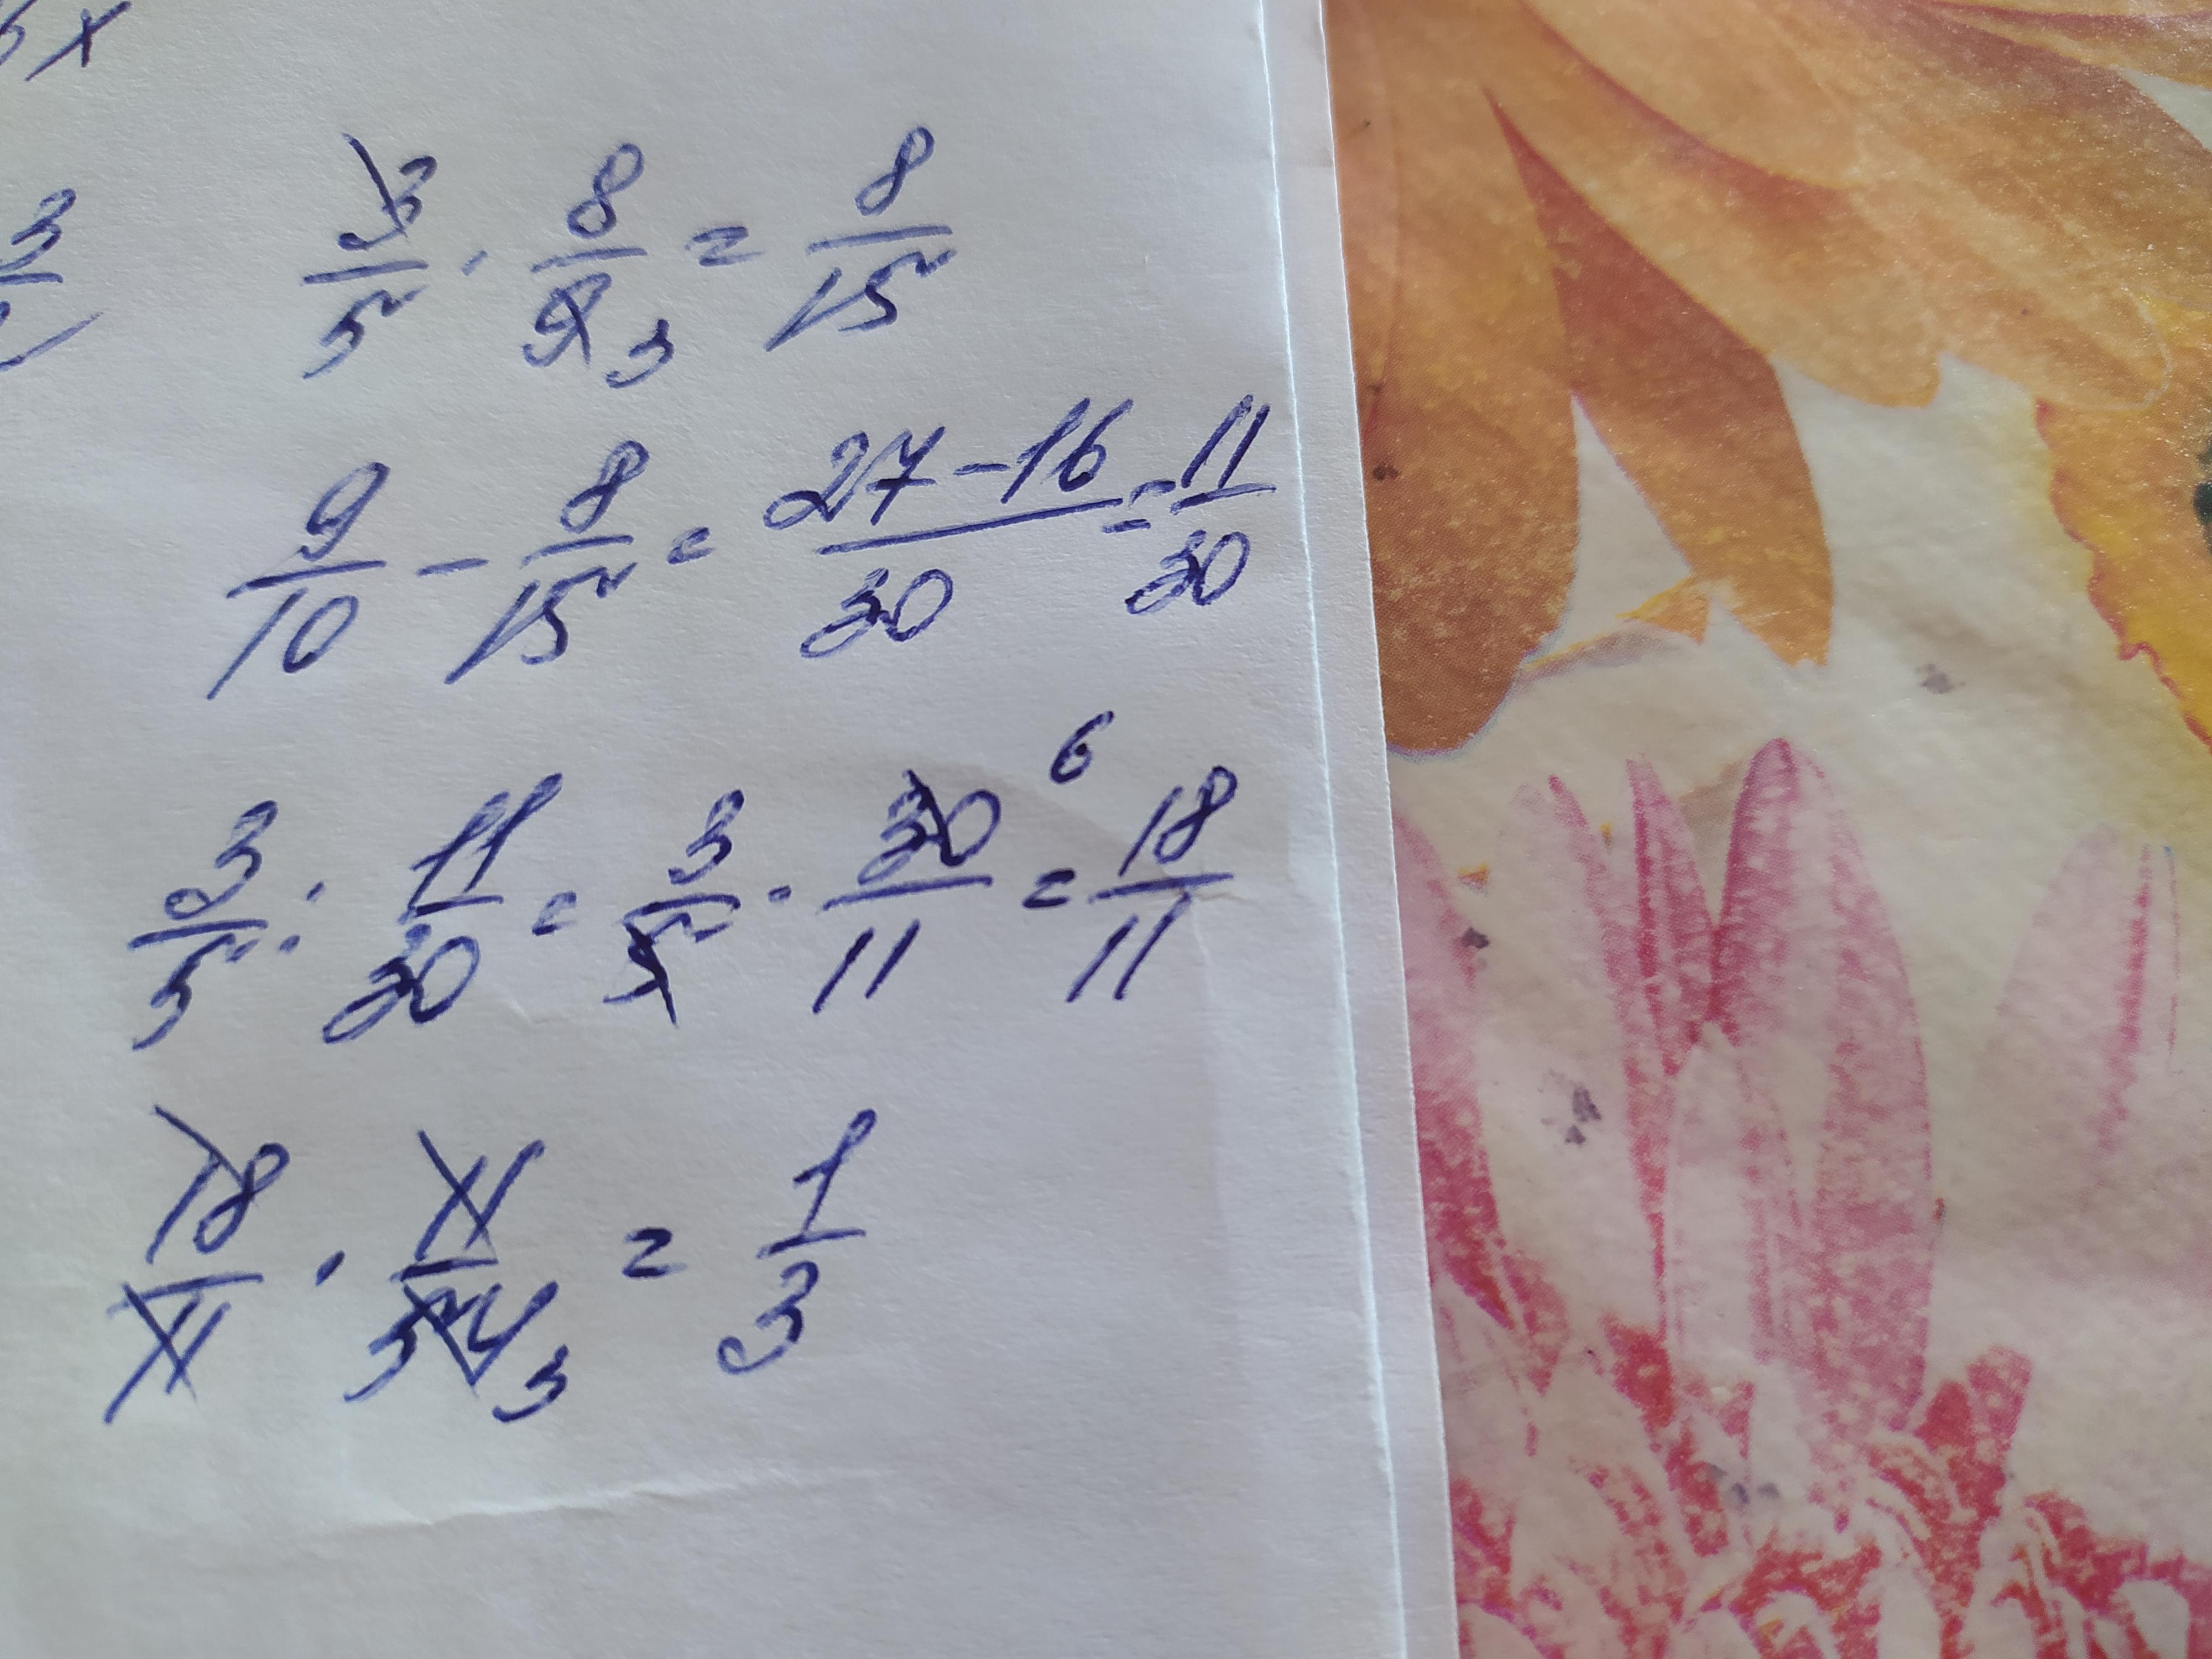 5x
3/5 · 8/9 3 = 8/15
9/10 - 8/15 = 27-16/30 = 11/30
3/5 : 11/30 = 3/5 · 30/11 6 = 18/11
18/11 · 11/54 3 = 1/3